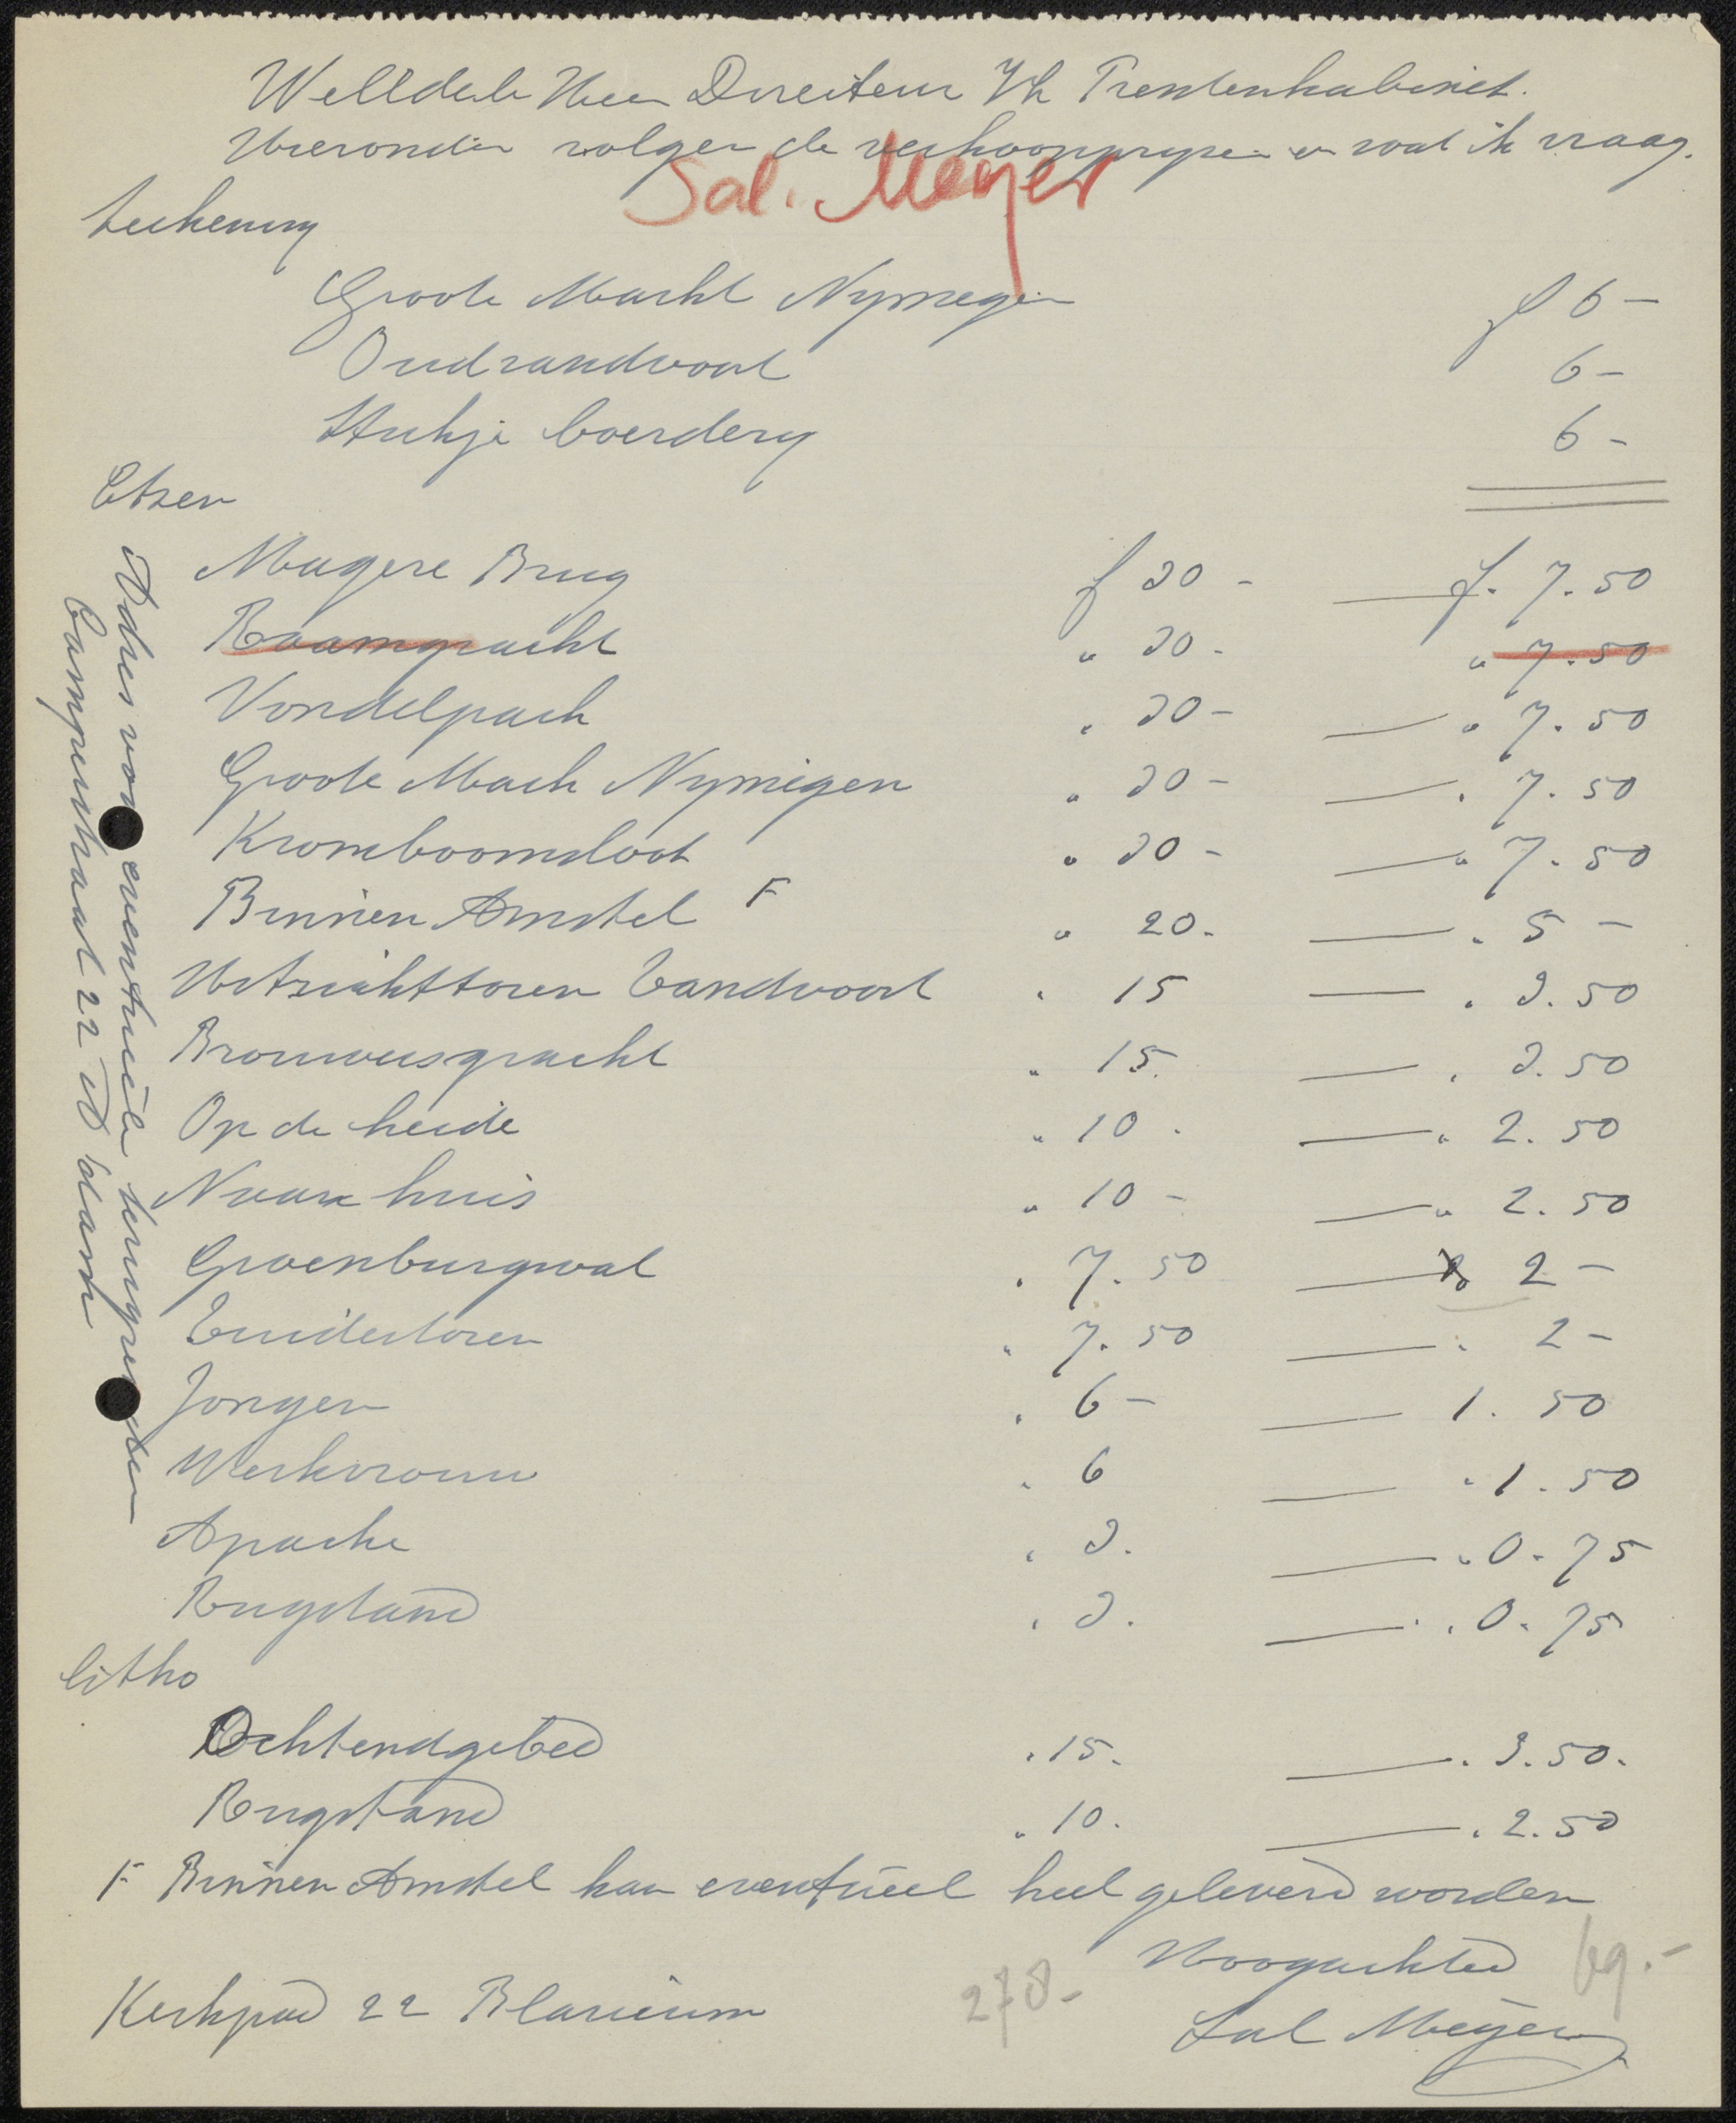 WelEdele Heer Directeur Vh Prentenkabinet.
Hieronder volgen de verkoopprijzen en wat ik vraag.
Sal. Meyer
teekening
Groote Markt Nymegen f 6 —
Oud zandvoort 6 —
Stukje boerdery 6 —
Etsen
Magere Brug f 30 - — f. 7.50
Raamgracht " 30 - " 7.50
Vondelpark " 30 - — " 7.50
Groote Mark Nymegen " 30 - — " 7.50
Kromboomsloot " 30 - — " 7.50
Binnen Amstel F " 20. — " 5 —
Uitzichttoren Zandvoort " 15 — " 3.50
Brouwersgracht " 15. — " 3.50
Op de heide " 10. — " 2.50
Naar huis " 10 - — " 2.50
Groenburgwal " 7.50 — 2 —
Zuidertoren " 7.50 — " 2 —
Jongen " 6 — — 1.50
Werkvrouw " 6 — " 1.50
Apache " 3. — " 0.75
Rugstand " 3. — " 0.75
litho
Ochtendgebed " 15. — " 3.50.
Rugstand " 10. — " 2.50
F Binnen Amstel kan eventueel heel geleverd worden
Hoogachtend 69.-
Kerkpad 22 Blaricum 278-
Sal Meÿer
Adres voor eventueele terugzenden
Campenstraat 22 A'dam